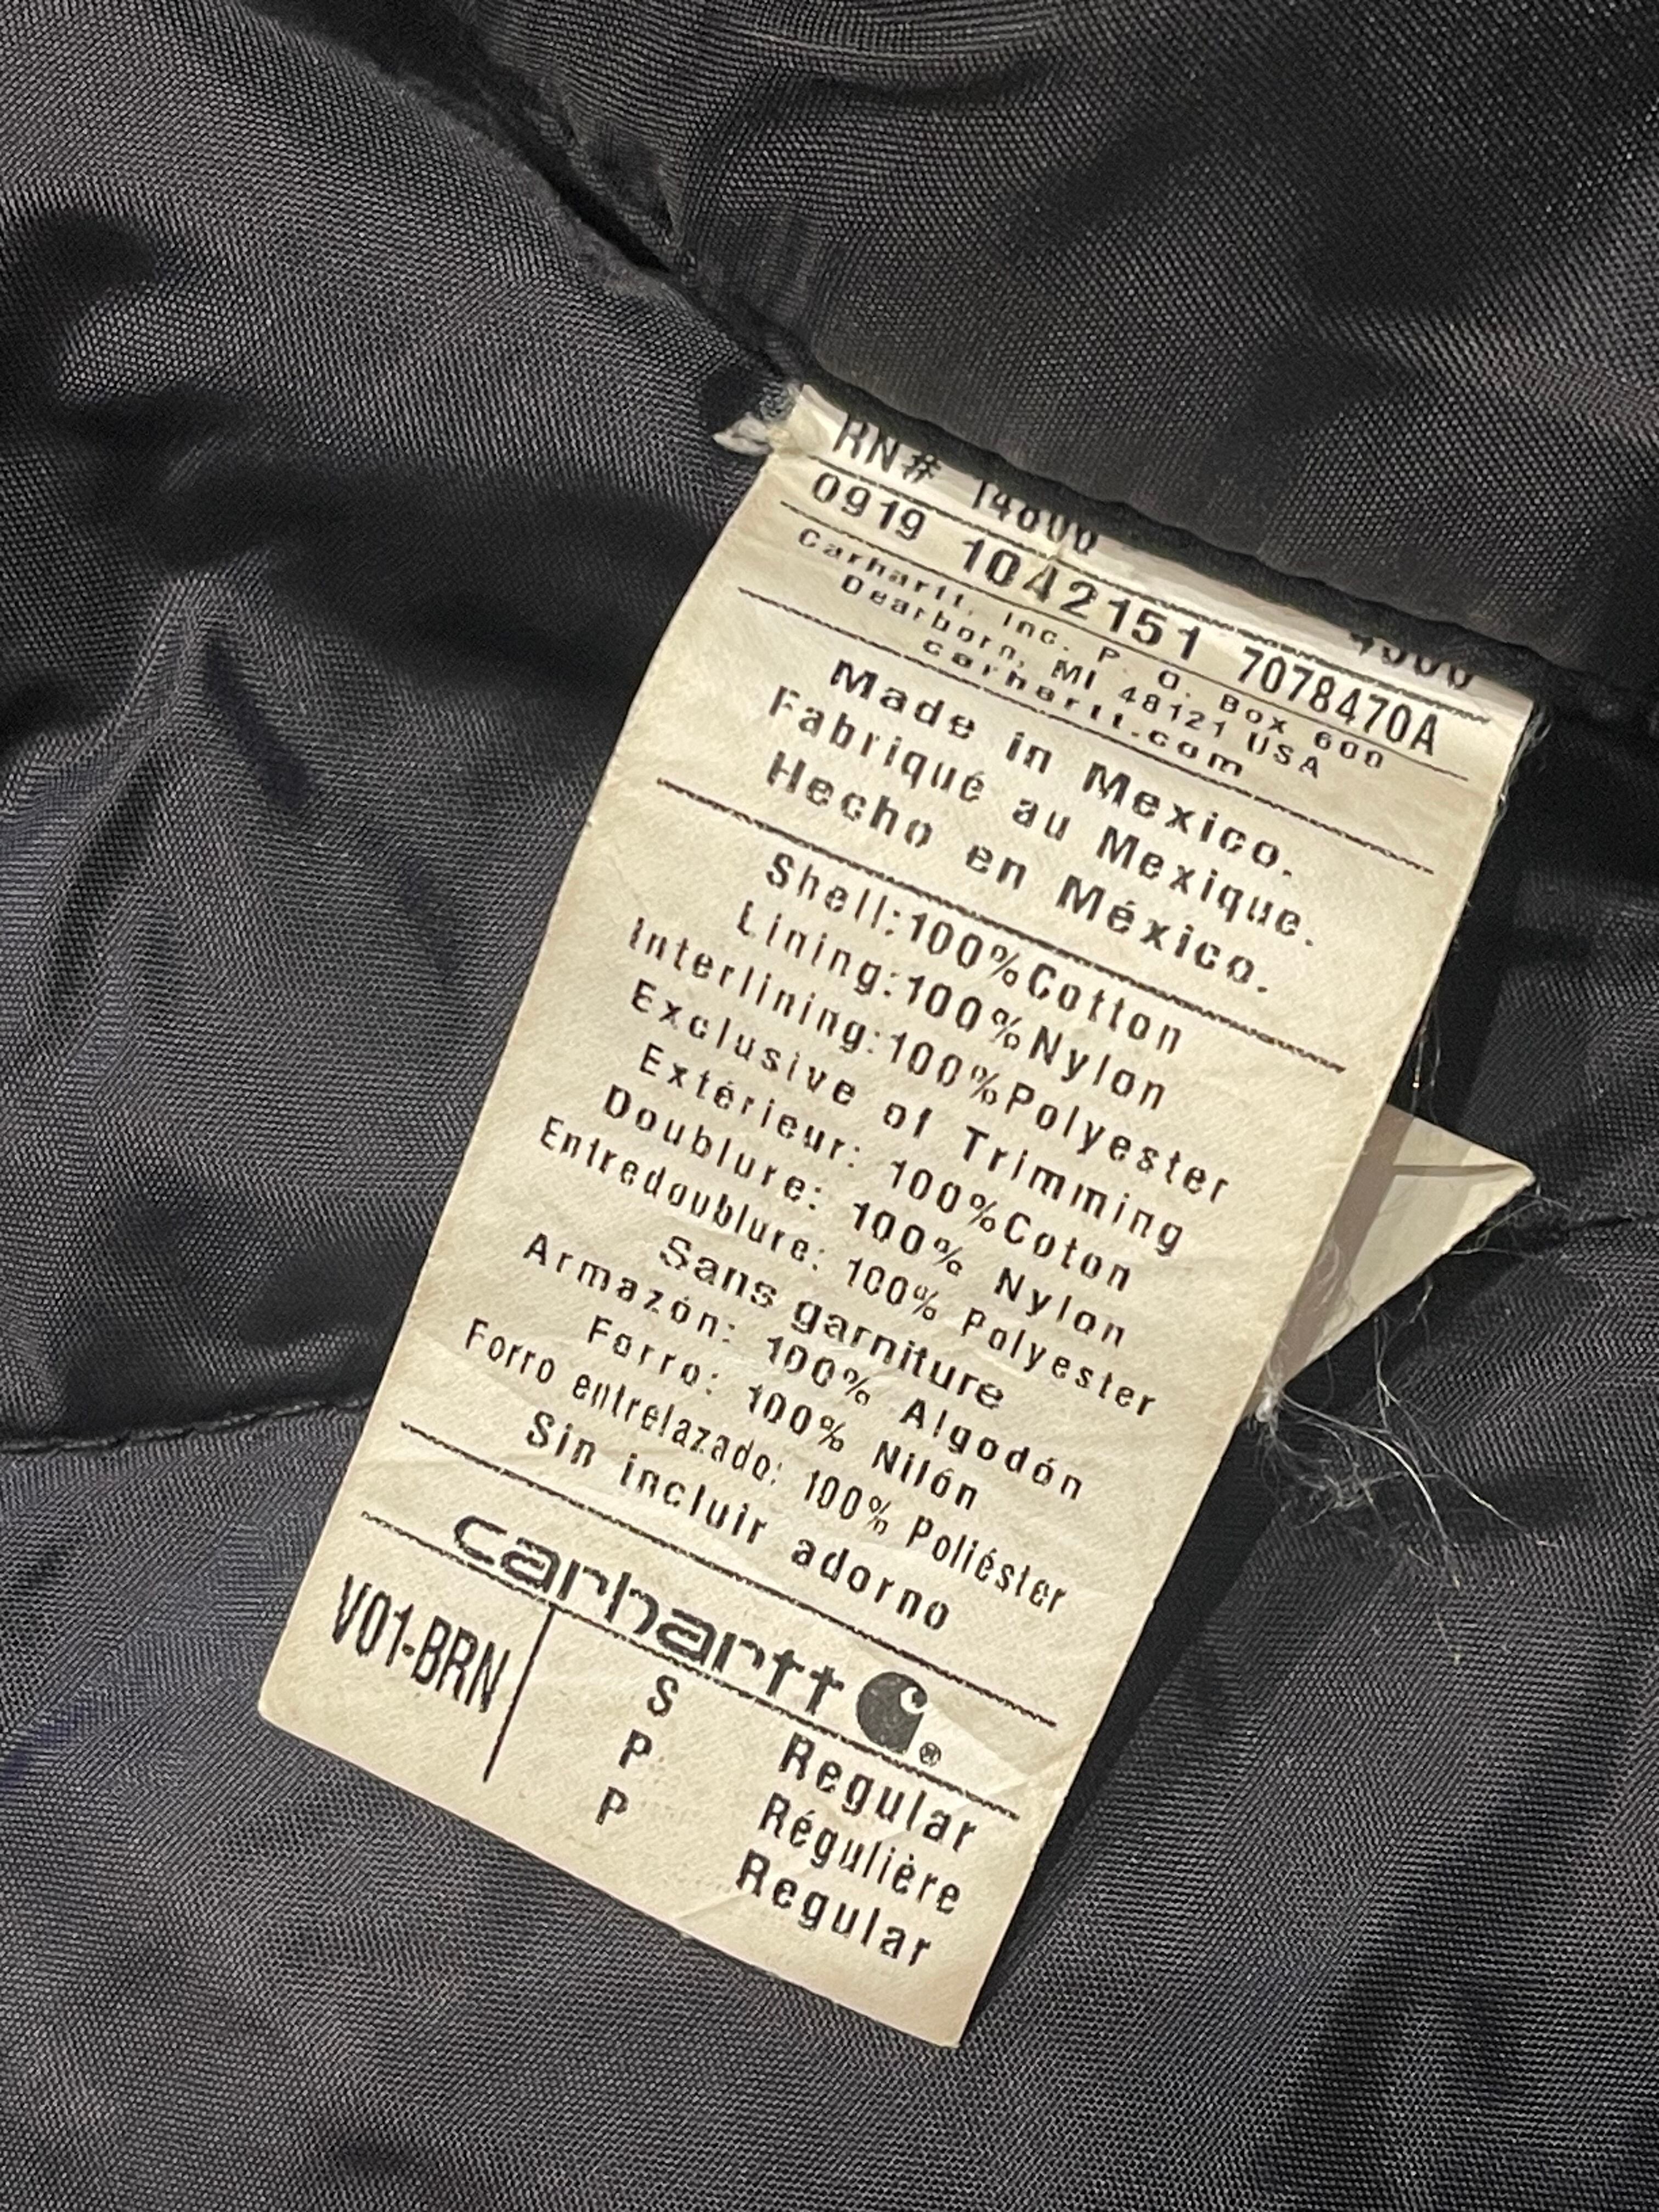 RN# 14806
0919 1042151 7078470A
Carhartt, Inc. P. O. Box 600
Dearborn, MI 48121 USA
carhartt.com
Made in Mexico.
Fabriqué au Mexique.
Hecho en México.
Shell:100%Cotton
Lining:100%Nylon
Interlining:100%Polyester
Exclusive of Trimming
Extérieur: 100%Coton
Doublure: 100% Nylon
Entredoublure: 100% Polyester
Sans garniture
Armazón: 100% Algodón
Forro: 100% Nilón
Forro entrelazado: 100% Poliéster
Sin incluir adorno
carhartt ®
V01-BRN S Regular
P Régulière
P Regular